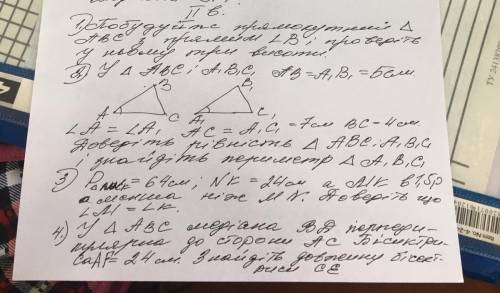 II в.
1) Побудуйте прямокутний Δ
ABC з прямим ∠B і проверіть
у ньому три висоти.
2) У Δ ABC і A₁B₁C₁ AB = A₁B₁ = 5см.
B B₁
A C A₁ C₁
∠A = ∠A₁ AC = A₁C₁ = 7см BC = 4см
Доведіть рівність Δ ABC і A₁B₁C₁
і знайдіть периметр Δ A₁B₁C₁
3) = 64см; NK = 24см а MK в 1,5р
менша ніж MN. Доведіть що
∠M = ∠K.
4.) У Δ ABC медіана BD перпенди-
кулярна до сторони AC Бісектри-
са AF = 24см. Знайдіть довжину бісект-
риси CE